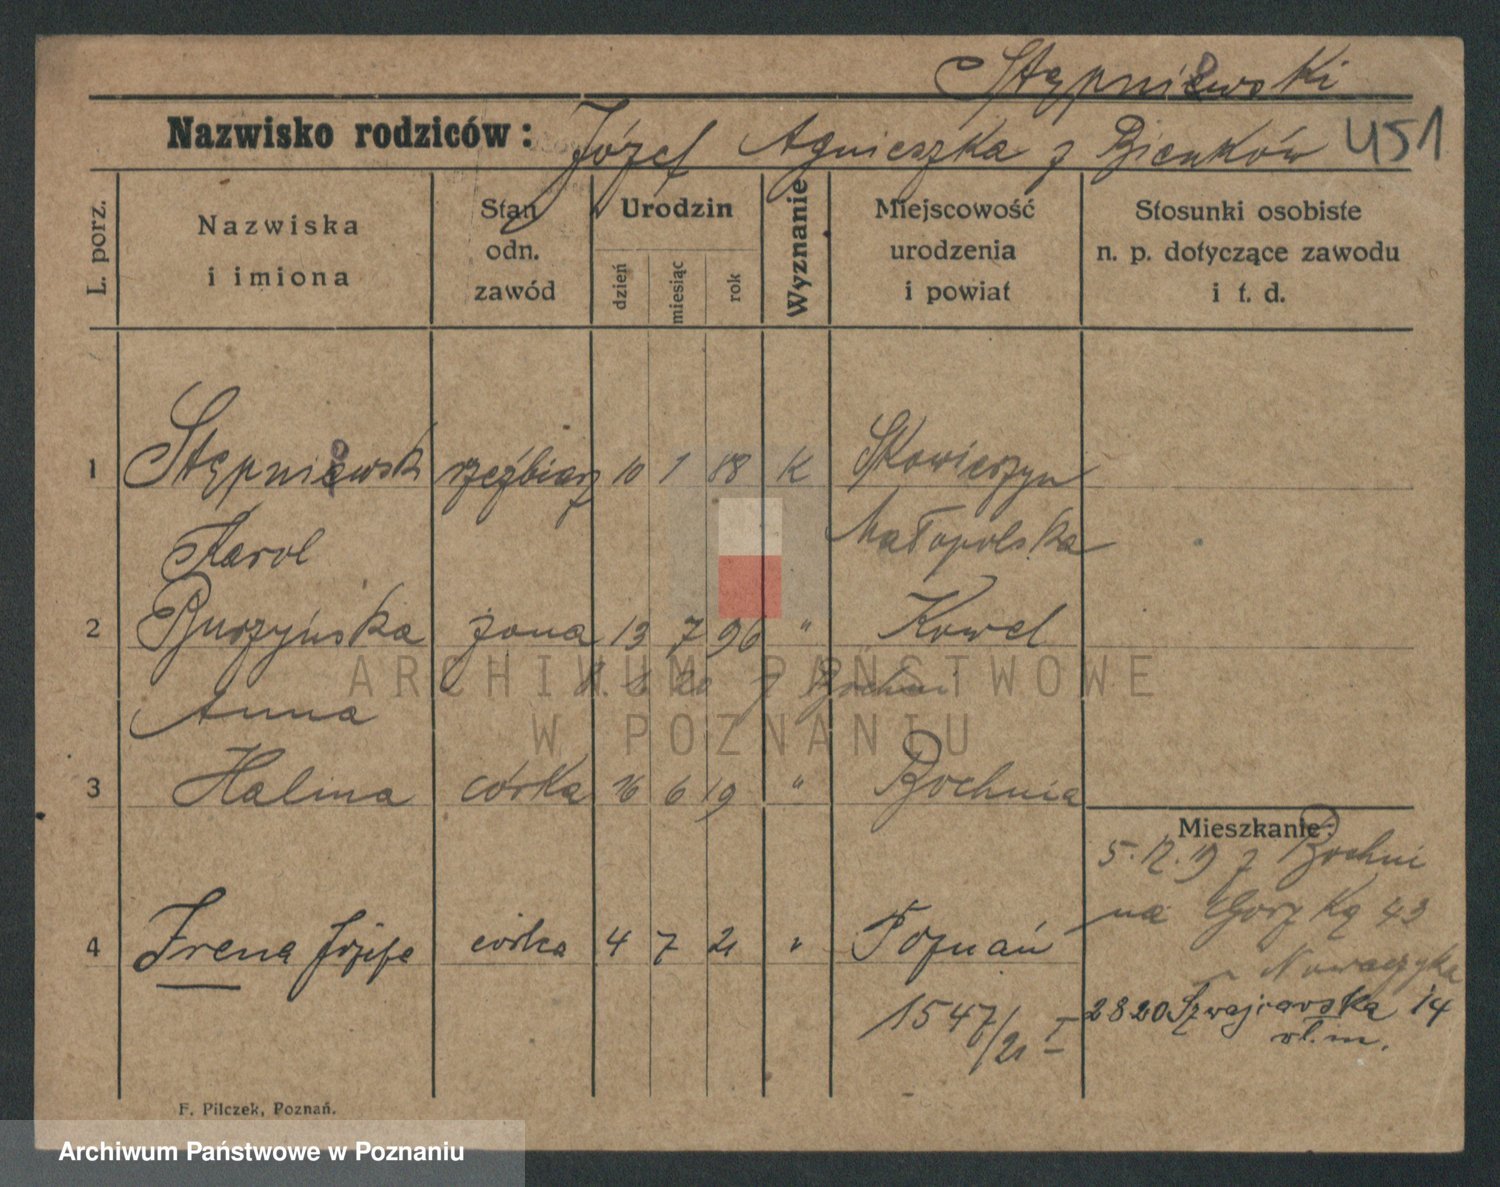 Stępniewski
Nazwisko rodziców: Józef Agnieszka z Bienków 451
L. porz.
Nazwiska
i imiona
Stan
odn.
zawód
Urodzin
dzień
miesiąc
rok
Wyznanie
Miejscowość
urodzenia
i powiat
Stosunki osobiste
n. p. dotyczące zawodu
i t. d.
1 Stępniewsk rzeźbiarz 10 1 88 K Skowierzyn
Karol Małopolska
2 Burzyńska żona 13 7 96 " Kowel
Anna 8 20 z Bochni
3 Halina córka 16 6 19 " Bochnia
Mieszkanie:
5.12.19 z Bochni
na Gorzką 43
Nowaczyka
4 Irena Józefa córka 4 7 21 " Poznań
1547/21 I
2820 Szwajcarska 14
wł. m.
F. Pilczek, Poznań.
ARCHIWUM PAŃSTWOWE
W POZNANIU
Archiwum Państwowe w Poznaniu